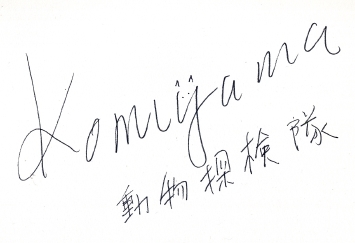 Komiyama
動物探検隊